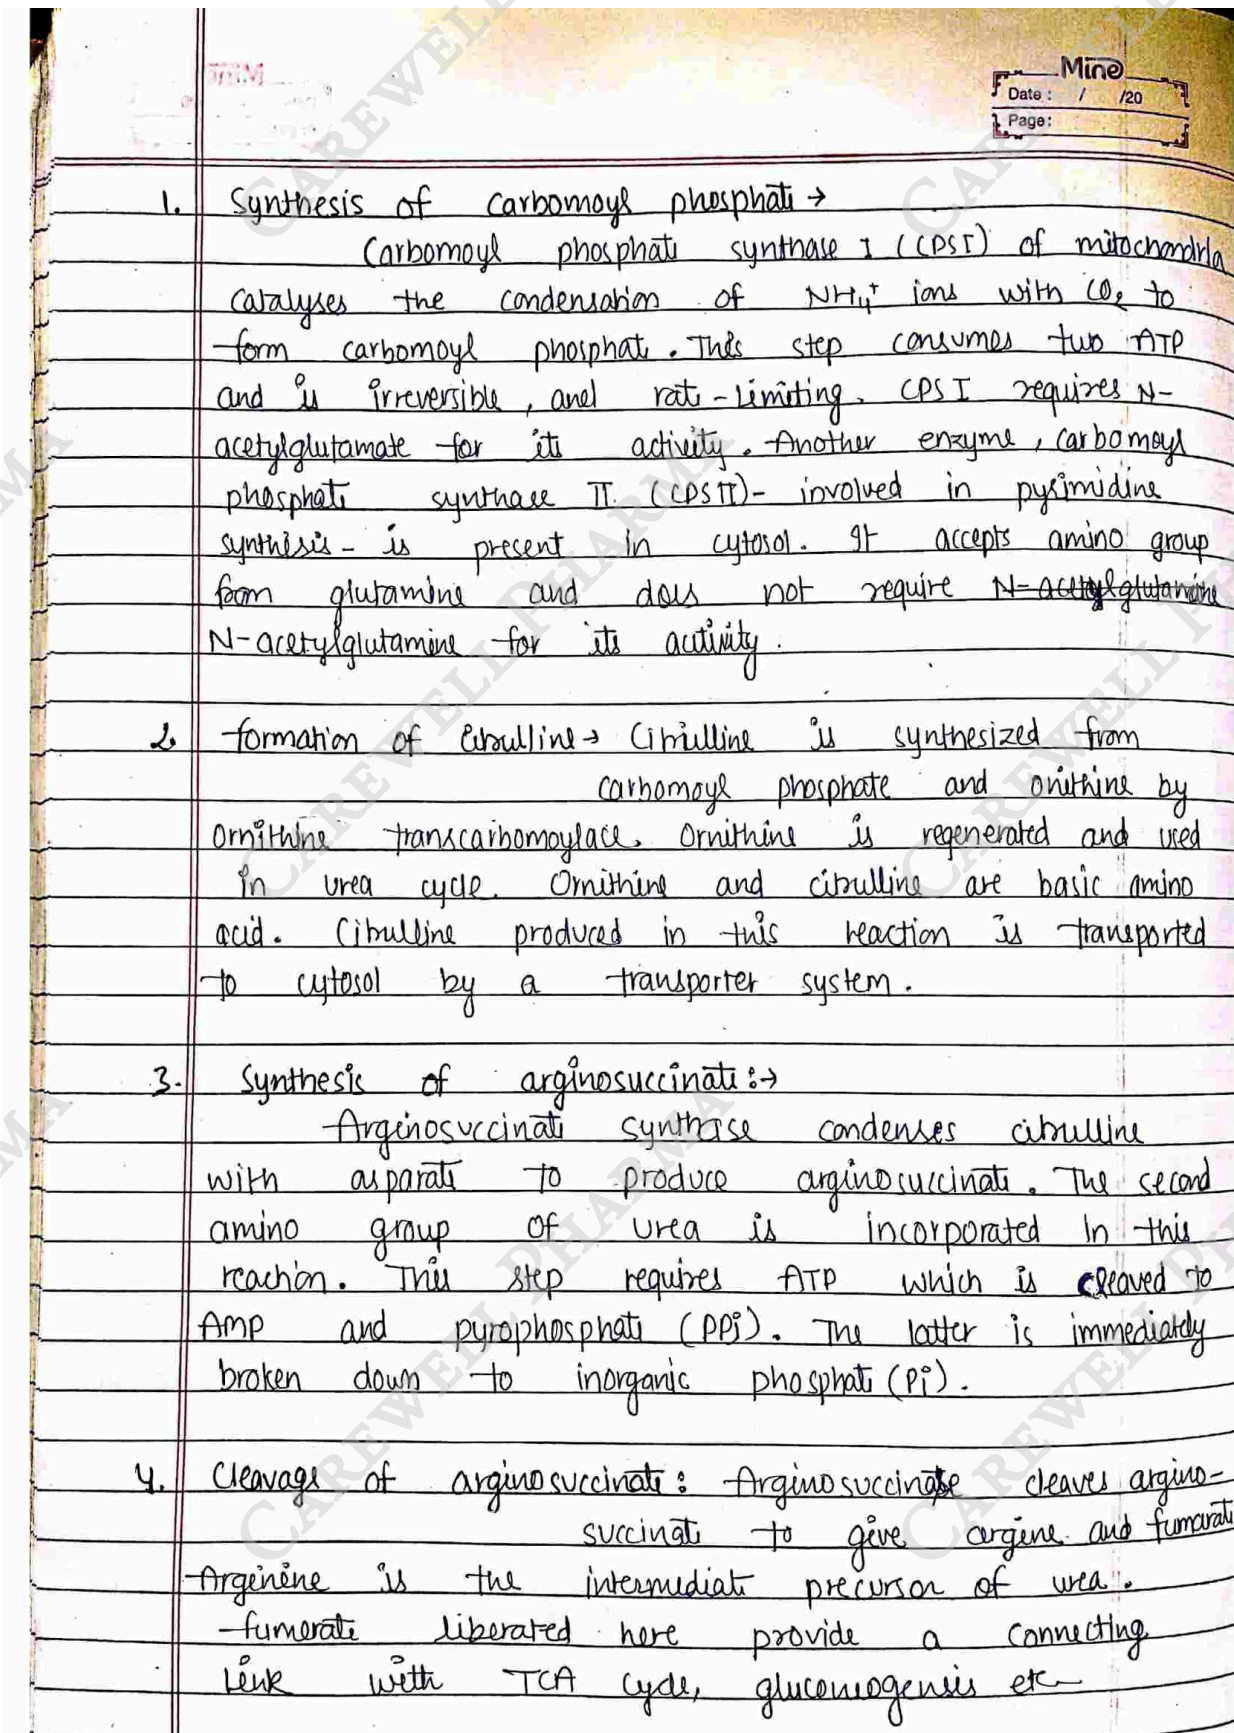 Mine
Date : / /20
Page:
1. Synthesis of carbomoyl phosphate →
Carbomoyl phosphate synthase I (CPSI) of mitochondria
catalyses the condensation of NH4+ ions with CO2 to
form carbomoyl phosphate. This step consumes two ATP
and is irreversible, and rate-limiting. CPS I requires N-
acetylglutamate for its activity. Another enzyme, carbomoyl
phosphate synthase II (CPSII)- involved in pyrimidine
synthesis- is present in cytosol. It accepts amino group
from glutamine and does not require N-acetylglutamine
N-acetylglutamine for its activity.
2. formation of Citrulline → Citrulline is synthesized from
carbomoyl phosphate and onithine by
Ornithine transcarbomoylace. Ornithine is regenerated and used
in urea cycle. Ornithine and citrulline are basic amino
acid. Citrulline produced in this reaction is transported
to cytosol by a transporter system.
3. Synthesis of arginosuccinate :→
Arginosuccinate synthase condenses citrulline
with asparate to produce arginosuccinate. The second
amino group of urea is incorporated in this
reaction. This step requires ATP which is cleaved to
AMP and pyrophosphate (PPi). The latter is immediately
broken down to inorganic phosphate (Pi).
4. Cleavage of arginosuccinate: Arginosuccinase cleaves argino-
succinate to give argine and fumarate
Arginine is the intermediate precursor of urea.
fumerate liberated here provide a connecting
link with TCA cycle, gluconeogensis etc
CAREWELL PHARMA